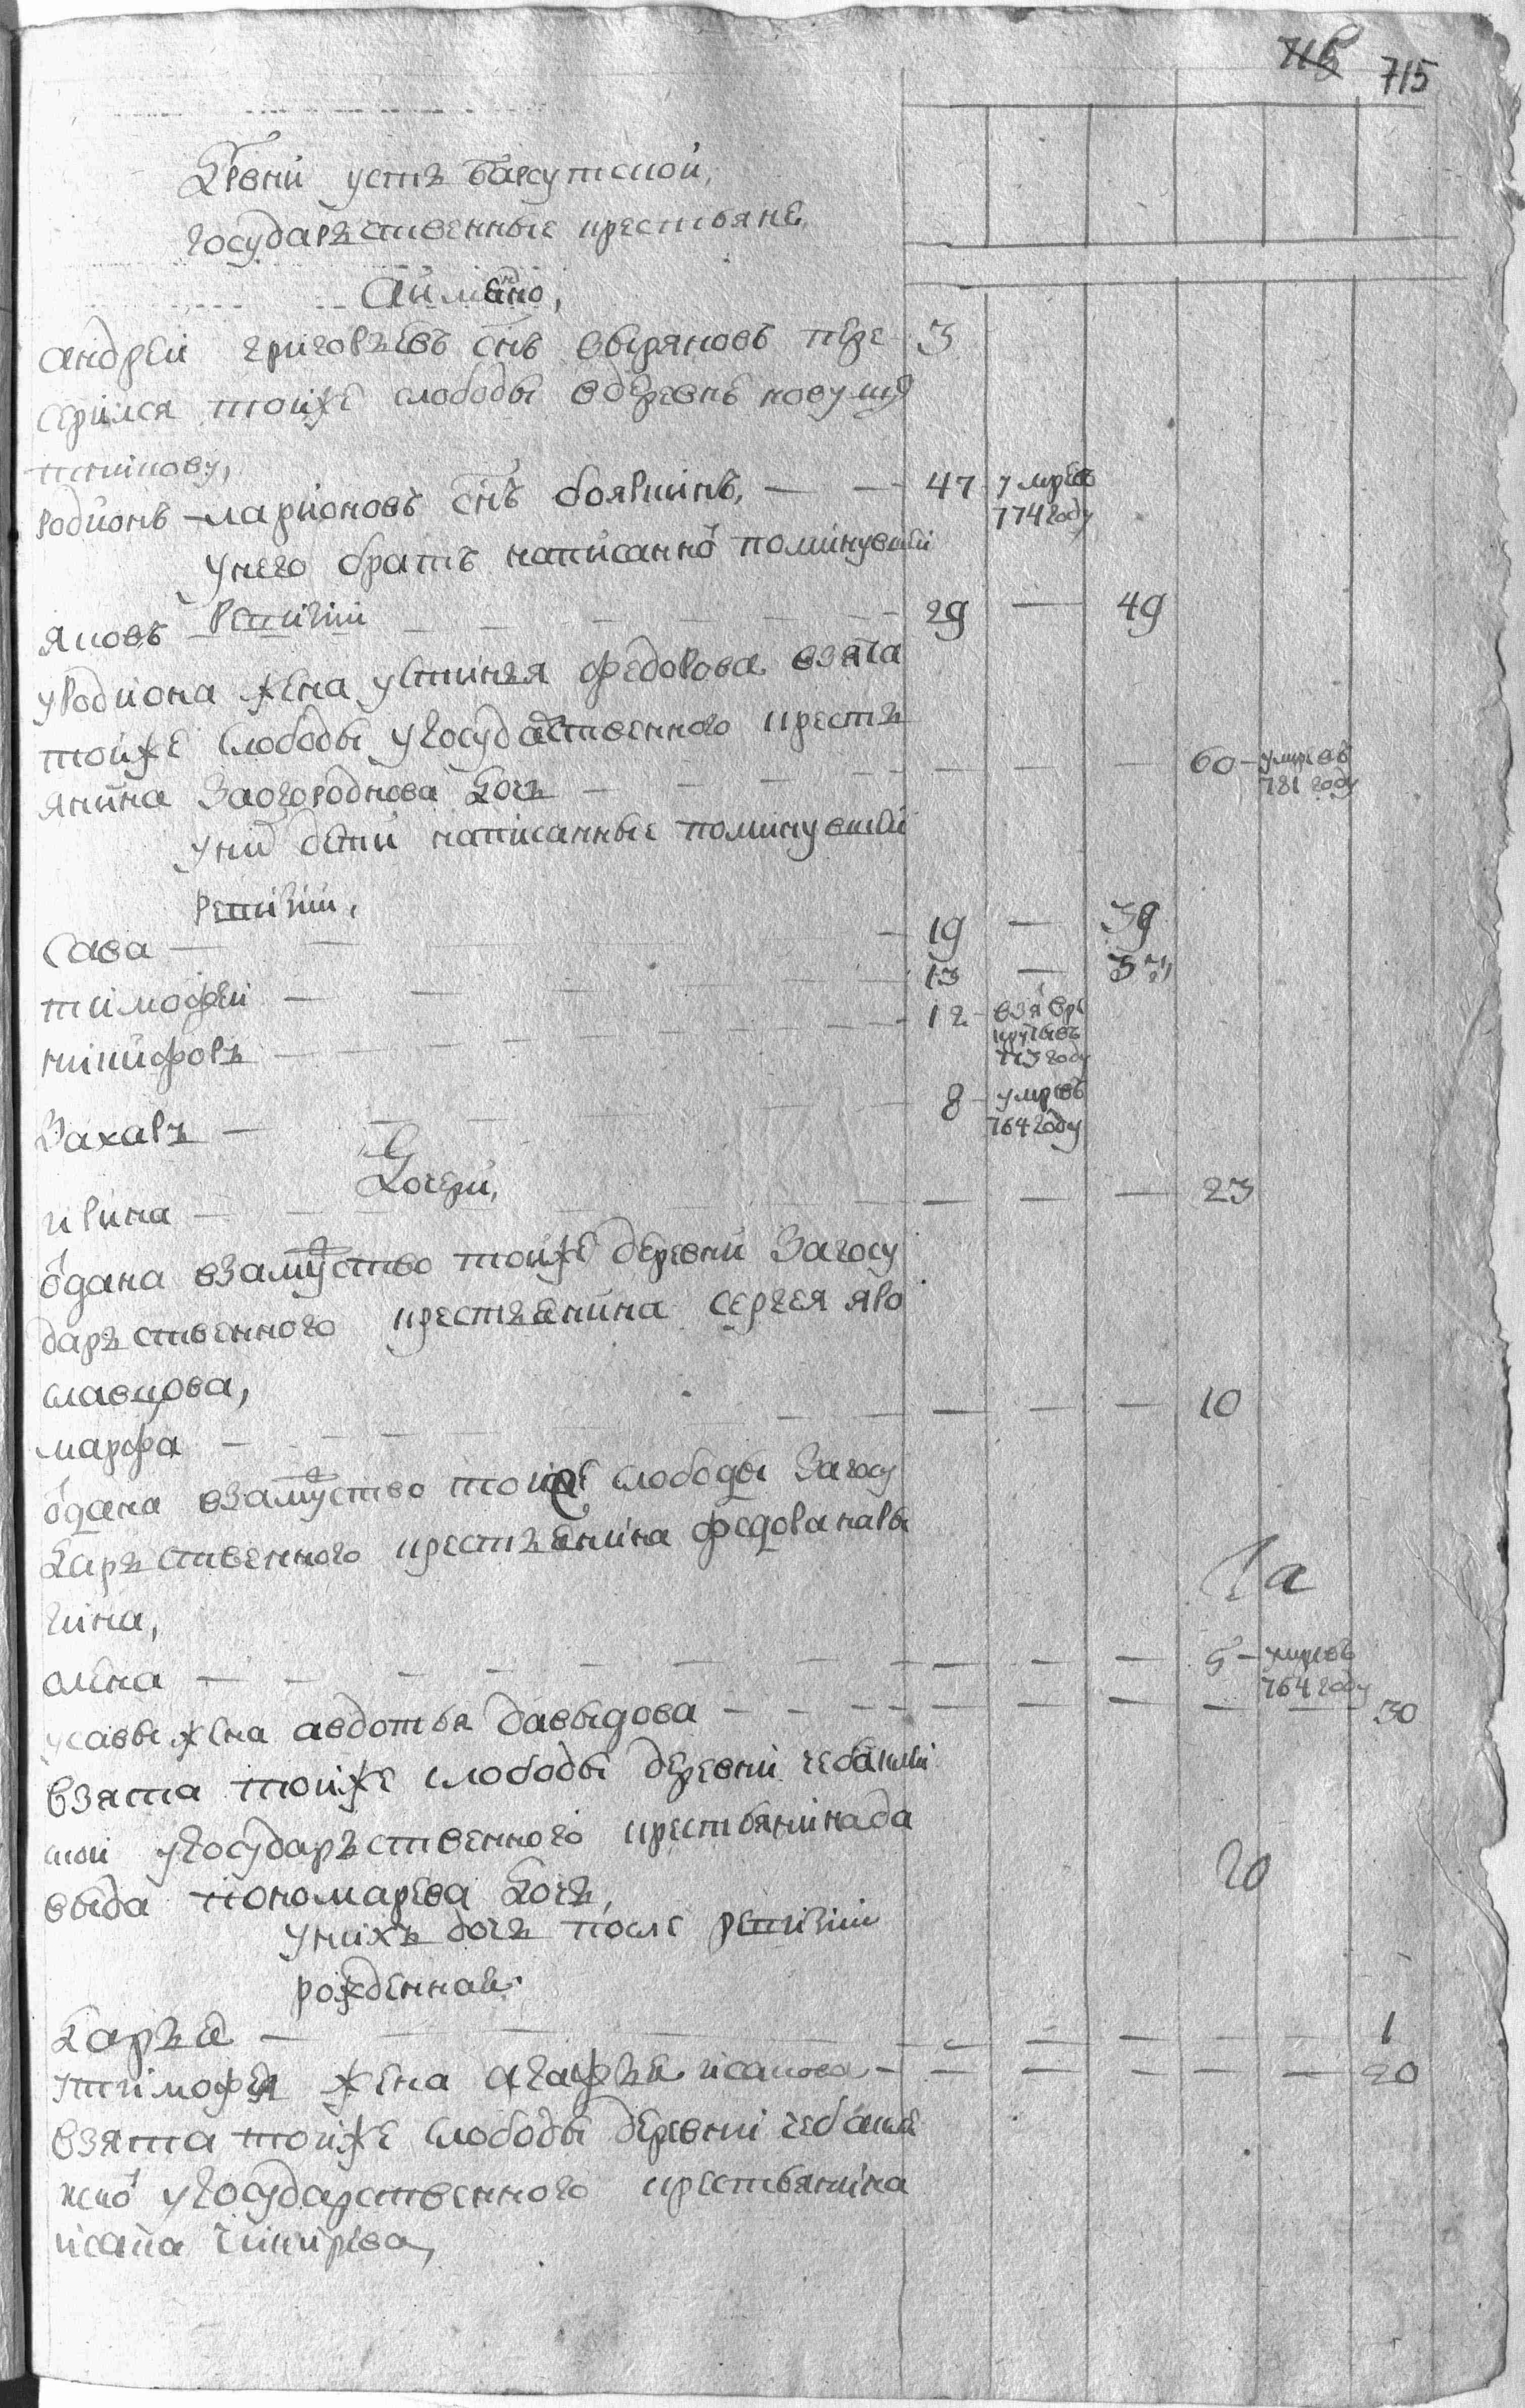 715
Дрвни усть бакутской,
государьственные крестьяне,
а имянно,
андреи григорьевъ снъ овыряновъ пере 3
тоиже слободы вдеревне новуля
родионъ ларионовъ снъ бояршинъ, — — 47 умревъ 774 году
унего братъ написанно поминувшеи
яковъ ревизии — — — 29 — 49
уродиона жена устинья федорова взята
тоиже слободы угосударственного кресть
янина Заогороднова дочь — — — — — 60 — умре въ 781 году
уних дети написанные поминувшеи
ревизии,
Сава — — — 19 — 39
тимофеи — — — 13 — 33
никифоръ — — — 12 взя врекруты въ 773 году
Захаръ — — — 8 — умре въ 764 году
Дочери,
ирина — — — — — 23
одана взамуство тоиже деревни Загосу
дарьственного крестьянина сергея яро
славцова,
марфа — — — — — — 10
одана взамуство тоиже слободы Загосу
дарьственного крестьянина федора кары
гина,
олена — — — — — — 5 — умре въ 764 году
усавы жена авдотья давыдова — — — — — — 30
взята тоиже слободы деревни чебаклей
ской угосударьственного крестьянина да
выда пономарева дочь,
унихъ дочь после ревизии
рожденная
дарья — — — — — 1
утимофея жена агафья исакова — — — — — — 20
взята тоиже слободы деревни чебакле
иско угосударственного крестьянина
исака чикирева,